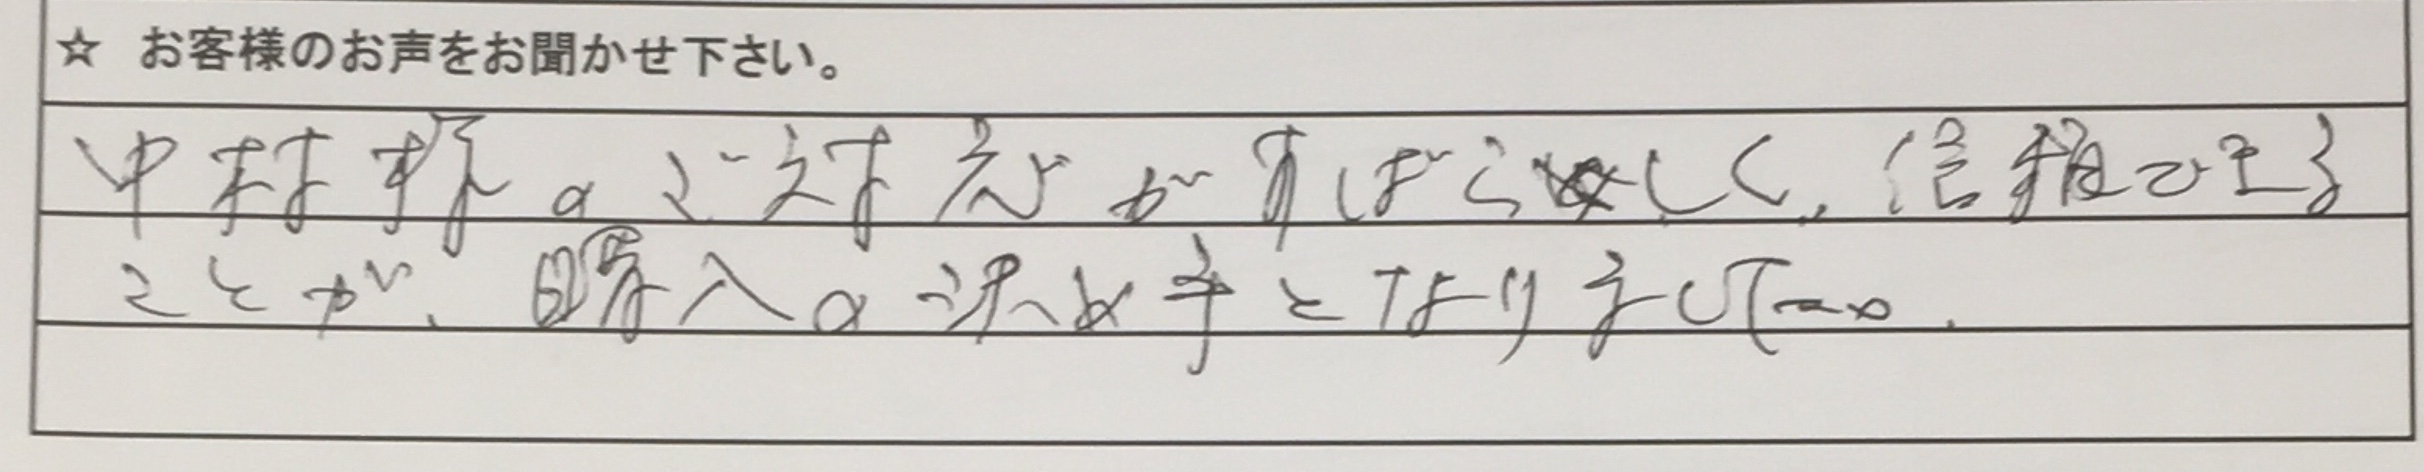 ☆ お客様のお声をお聞かせ下さい。
中村様のご対応がすばらしく、信頼できる
ことが、購入の決め手となりました。